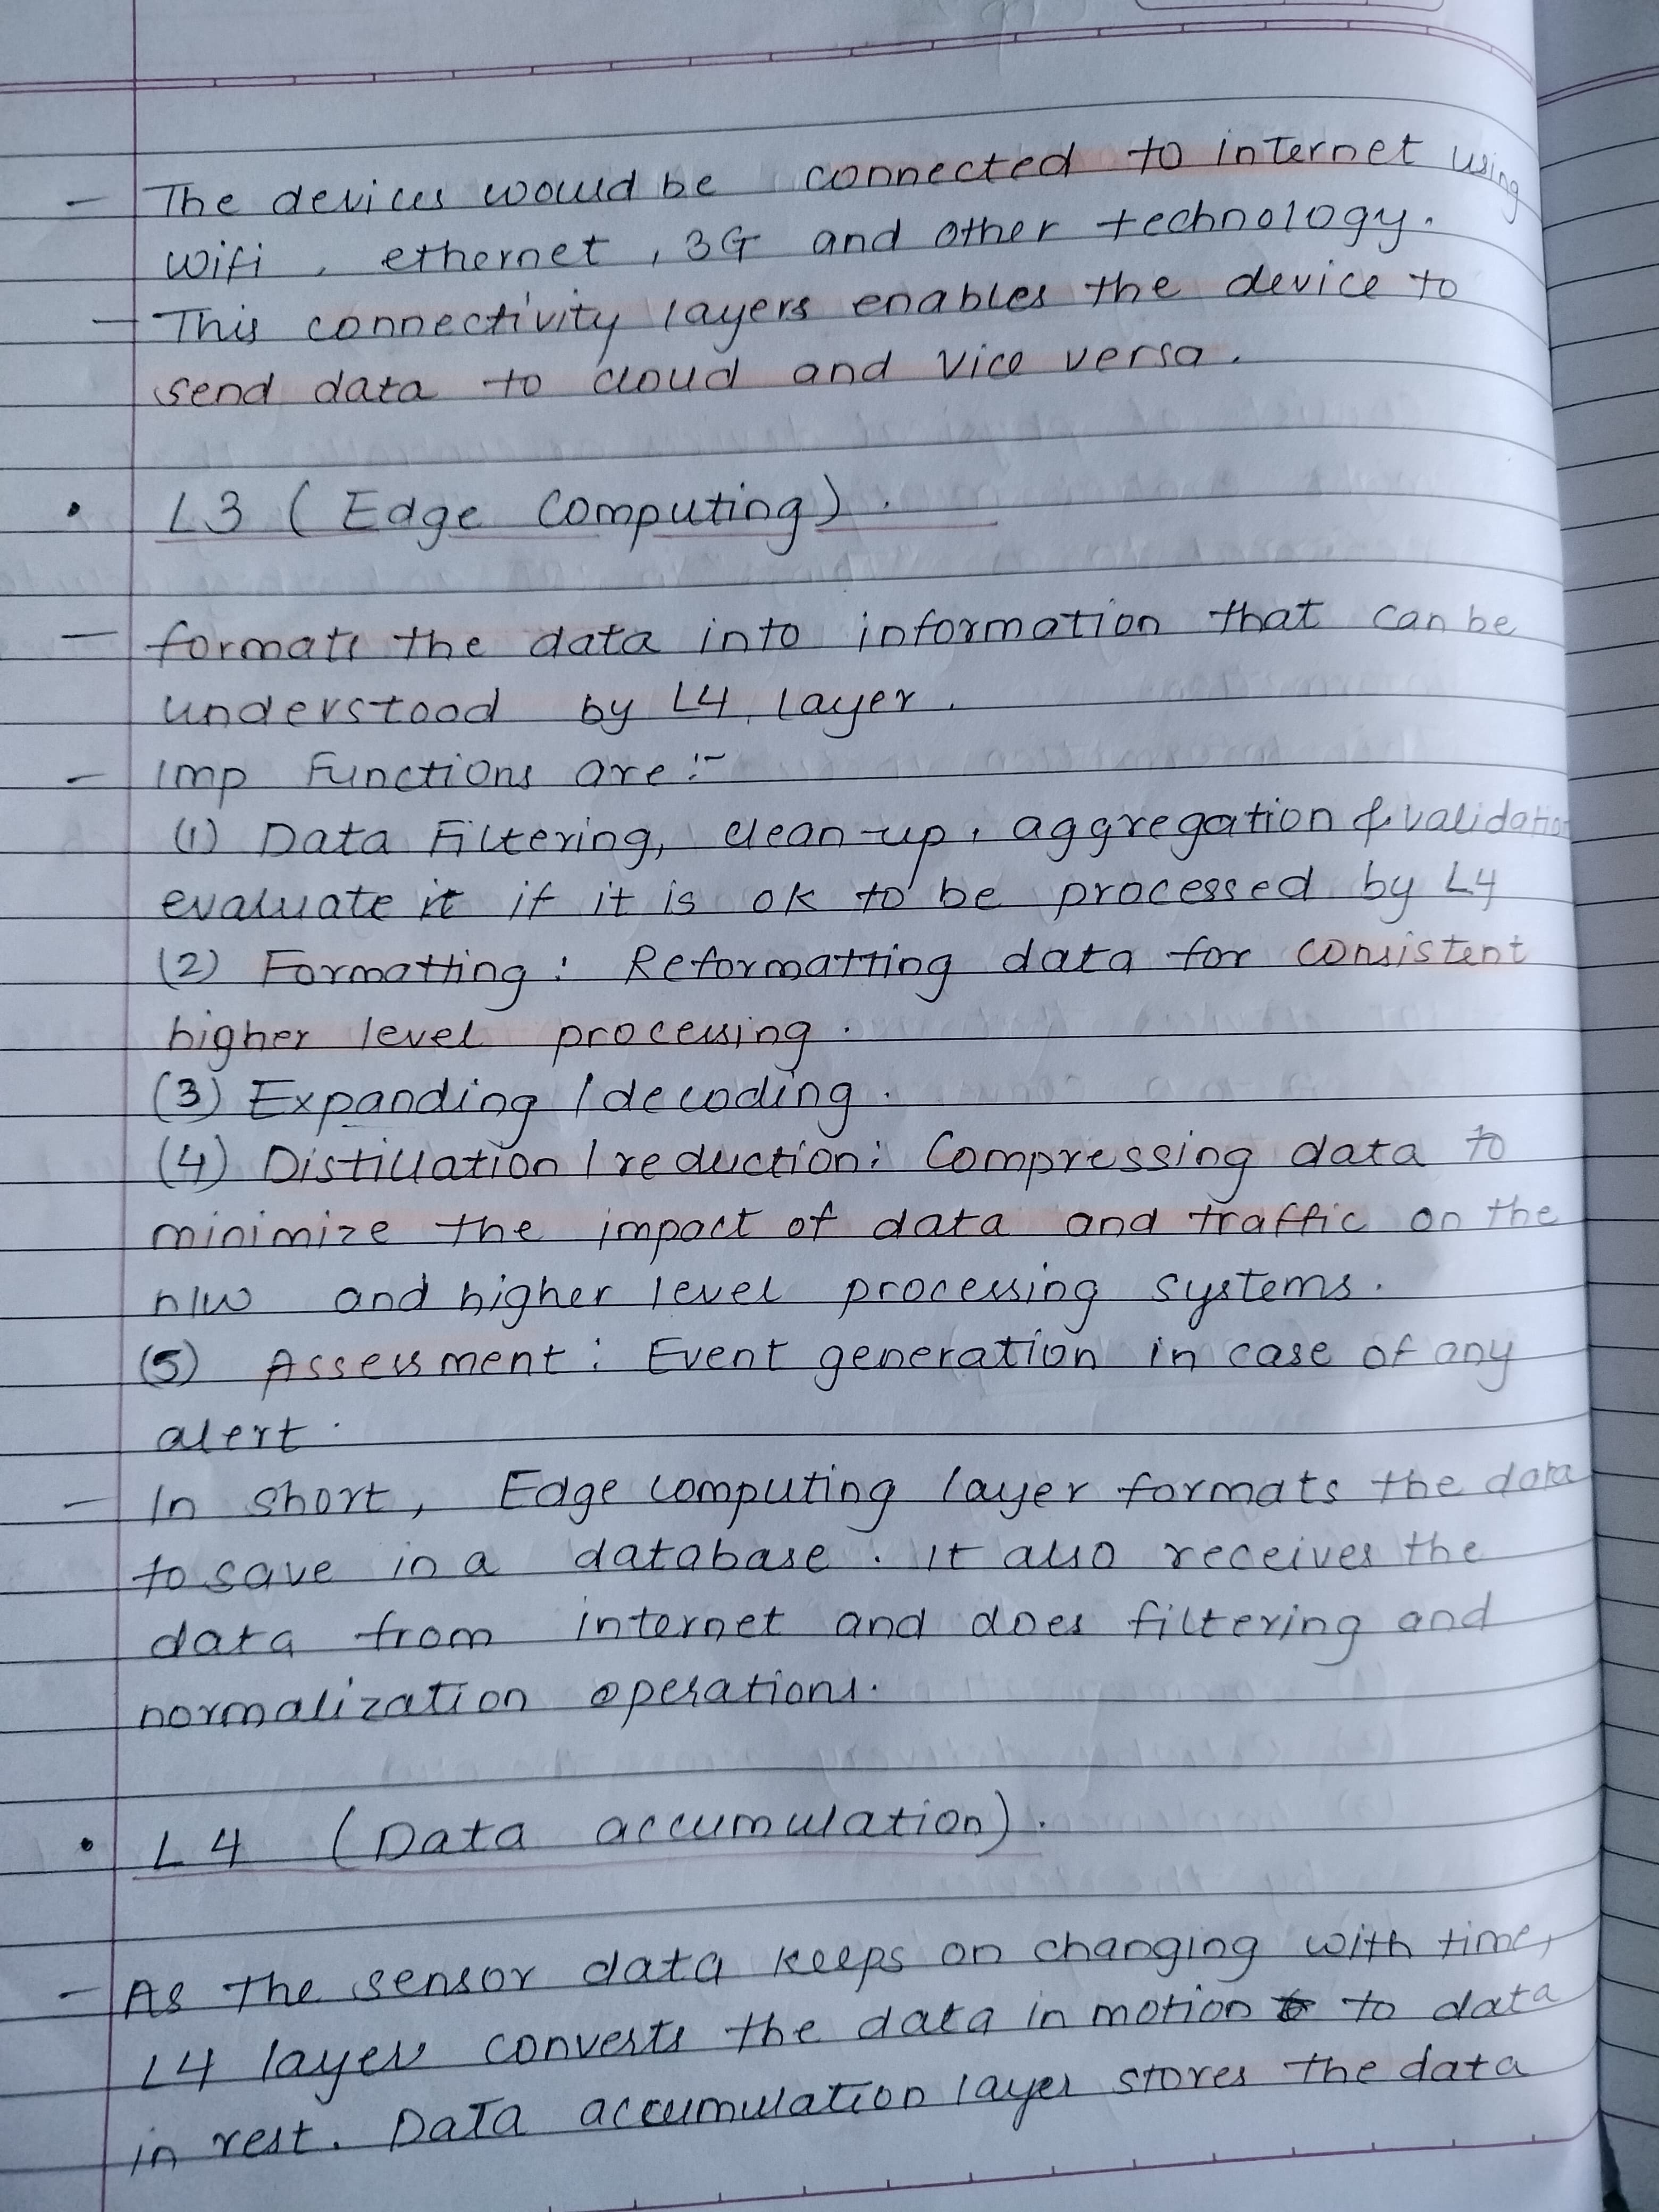 - The devices would be connected to internet using
wifi, ethernet, 3G and other technology.
- This connectivity layers enables the device to
send data to cloud and vice versa.
• L3 (Edge Computing).
- formats the data into information that can be
understood by L4 layer.
- Imp Functions are :-
(1) Data Filtering, clean-up, aggregation & validation
evaluate it if it is ok to be processed by L4
(2) Formatting : Reformatting data for consistent
higher level processing.
(3) Expanding / decoding.
(4) Distillation / reduction : Compressing data to
minimize the impact of data and traffic on the
n/w and higher level processing systems.
(5) Assessment : Event generation in case of any
alert.
- In short, Edge computing layer formats the data
to save in a database. It also receives the
data from internet and does filtering and
normalization operations.
• L4 (Data accumulation).
- As the sensor data keeps on changing with time,
L4 layer converts the data in motion to data
in rest. Data accumulation layer stores the data